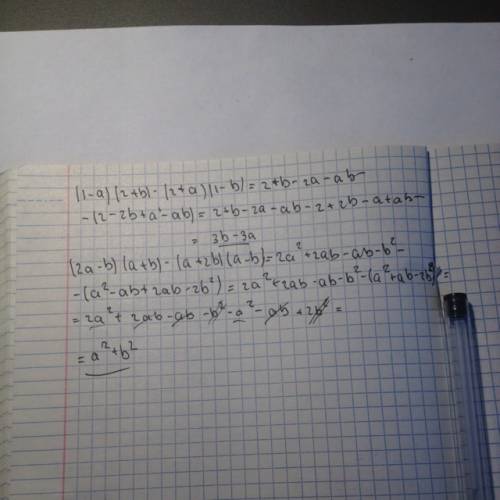 (1-a)(2+b)-(2+a)(1-b)=2+b-2a-ab-
-(2-2b+a-ab)=2+b-2a-ab-2+2b-a+ab=
=3b-3a
(2a-b)(a+b)-(a+2b)(a-b)=2a²+2ab-ab-b²-
-(a²-ab+2ab-2b²)=2a²+2ab-ab-b²-(a²+ab-2b²)=
=2a²+2ab-ab-b²-a²-ab+2b²=
=a²+b²